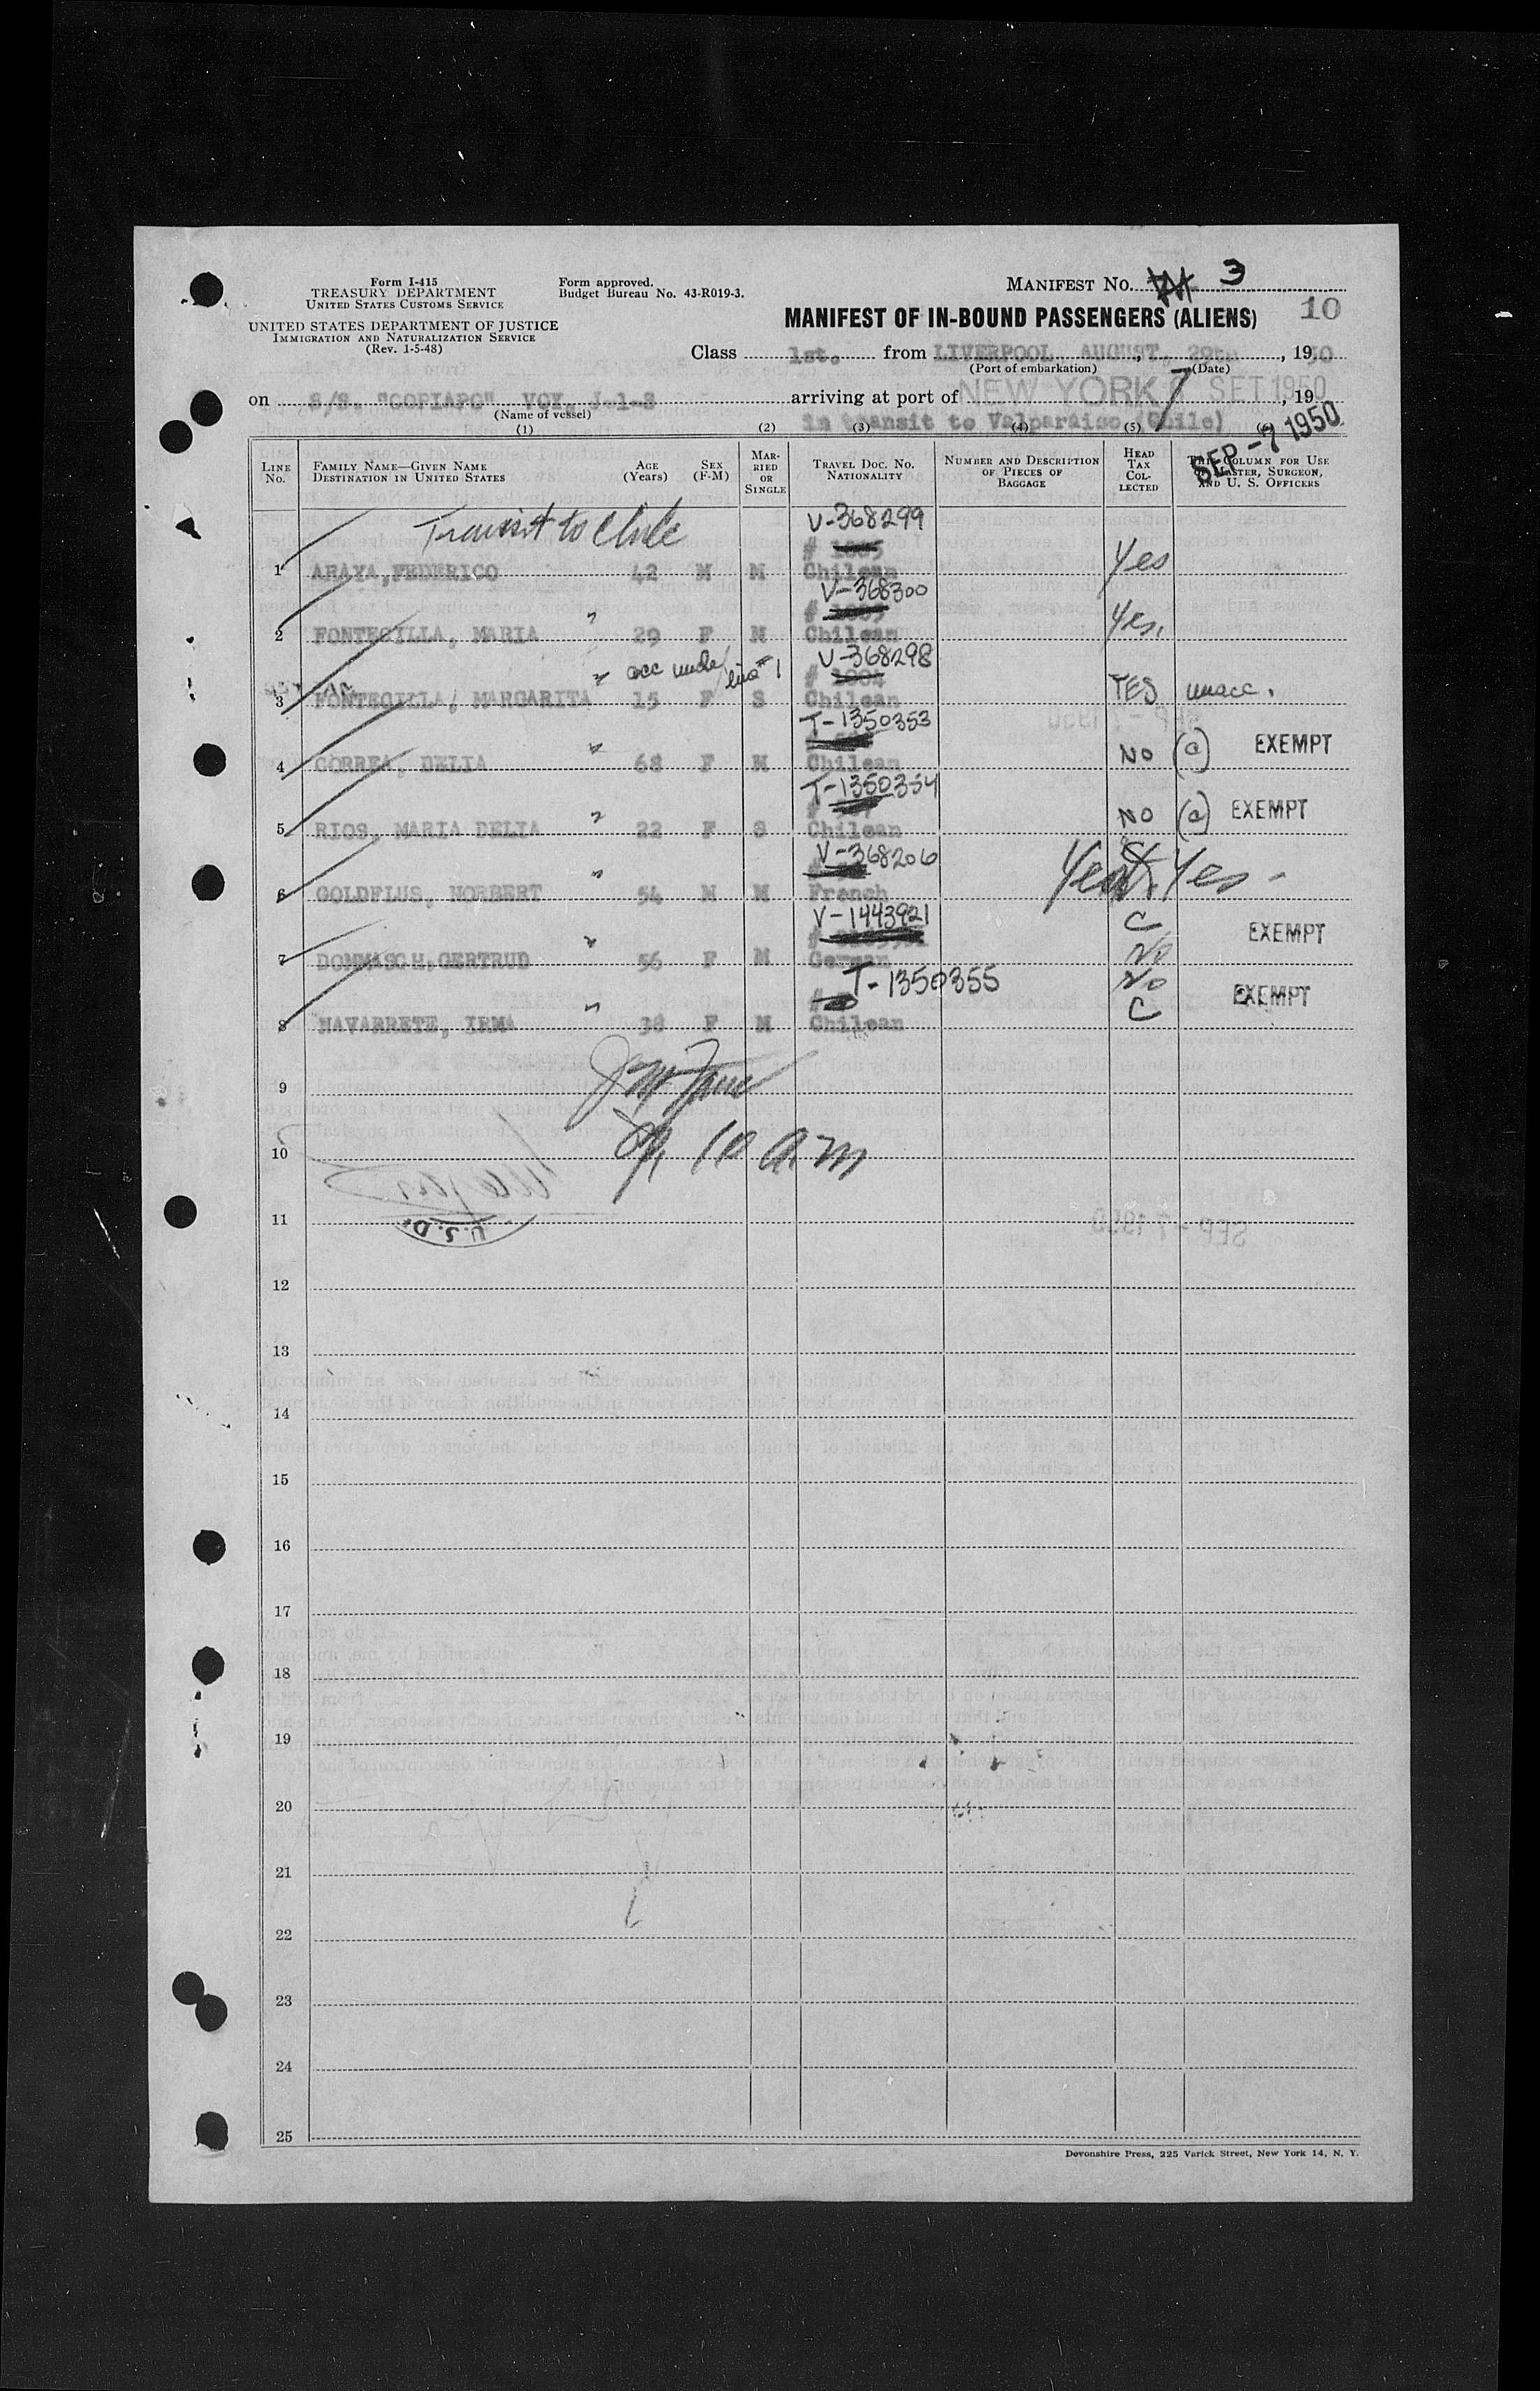 Form I-415
TREASURY DEPARTMENT
UNITED STATES CUSTOMS SERVICE
UNITED STATES DEPARTMENT OF JUSTICE
IMMIGRATION AND NATURALIZATION SERVICE
(Rev. 1-5-48)
Form approved.
Budget Bureau No. 43-R019-3.
MANIFEST No. 3
10
MANIFEST OF IN-BOUND PASSENGERS (ALIENS)
Class 1st. from LIVERPOOL, AUGUST, 29th, 1950
(Port of embarkation) (Date)
on S/S. "COPIAPO" VOY. J-1-S arriving at port of NEW YORK 7 SET 1950, 19
(Name of vessel)
in transit to Valparaiso (Chile)
SEP -7 1950
(1) (2) (3) (4) (5) (6)
LINE No.
FAMILY NAME—GIVEN NAME DESTINATION IN UNITED STATES
AGE (Years)
SEX (F-M)
MARRIED OR SINGLE
TRAVEL DOC. NO. NATIONALITY
NUMBER AND DESCRIPTION OF PIECES OF BAGGAGE
HEAD TAX COLLECTED
THIS COLUMN FOR USE OF MASTER, SURGEON, AND U. S. OFFICERS
Transit to Chile V-368299
1 ARAYA, FEDERICO 42 M M Chilean Yes
" V-368300
2 FONTECILLA, MARIA 29 F M Chilean Yes.
" acc uncle line #1 V-368298
3 FONTECILLA, MARGARITA 15 F S Chilean YES unacc.
" T-1350353
4 CORREA, DELIA 68 F M Chilean NO (a) EXEMPT
" T-1350354
5 RIOS, MARIA DELIA 22 F S Chilean NO (a) EXEMPT
" V-368206
6 GOLDFLUS, NORBERT 54 M M French Yes
" V-1443921
7 DOMMASCH, GERTRUD 56 F M German C No EXEMPT
" T-1350355
8 NAVARRETE, IRMA 38 F M Chilean No C EXEMPT
9
10 10 am
11
U.S.D.
SEP -7 1950
12
13
14
15
16
17
18
19
20
21
22
23
24
25
Devonshire Press, 225 Varick Street, New York 14, N. Y.